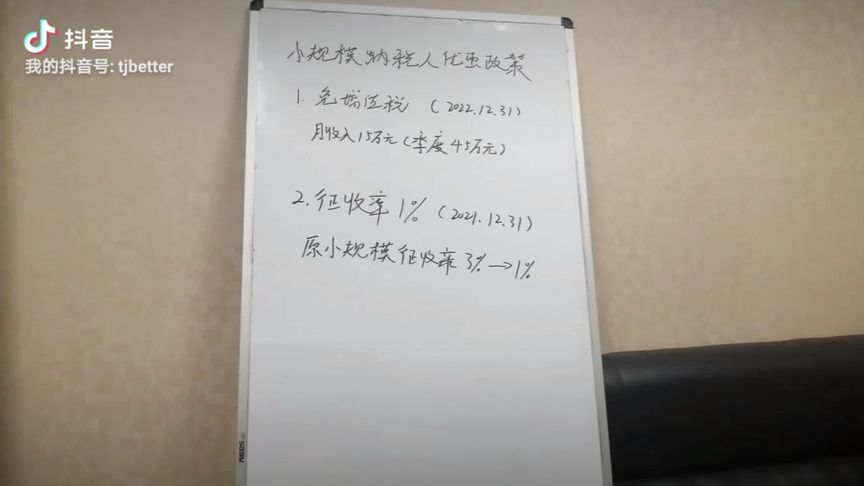 抖音
我的抖音号: tjbetter
小规模纳税人优惠政策
1. 免增值税 (2022.12.31)
月收入15万元(季度45万元)
2. 征收率1% (2021.12.31)
原小规模征收率3%→1%